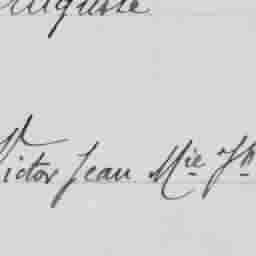 Auguste
Victor Jean Mie Jh